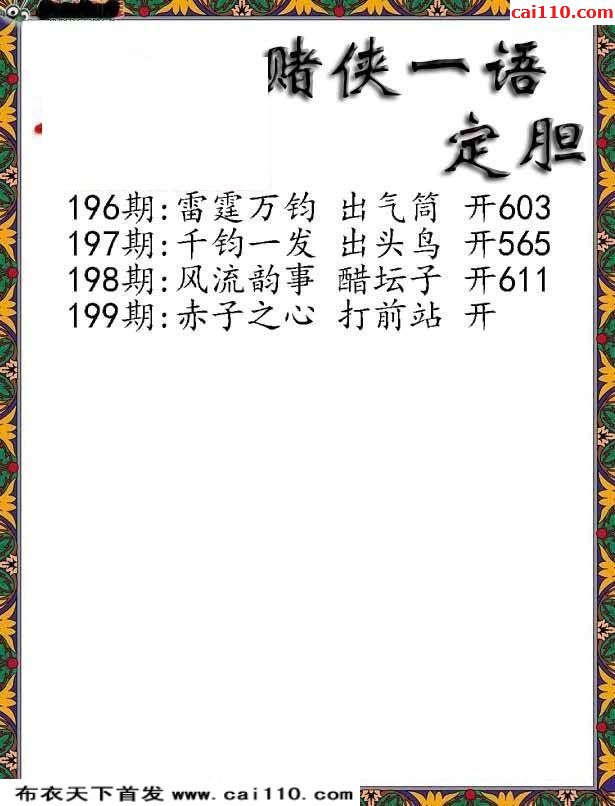 cai110.com
赌侠一语
定胆
196期:雷霆万钧 出气筒 开603
197期:千钧一发 出头鸟 开565
198期:风流韵事 醋坛子 开611
199期:赤子之心 打前站 开
布衣天下首发 www.cai110.com